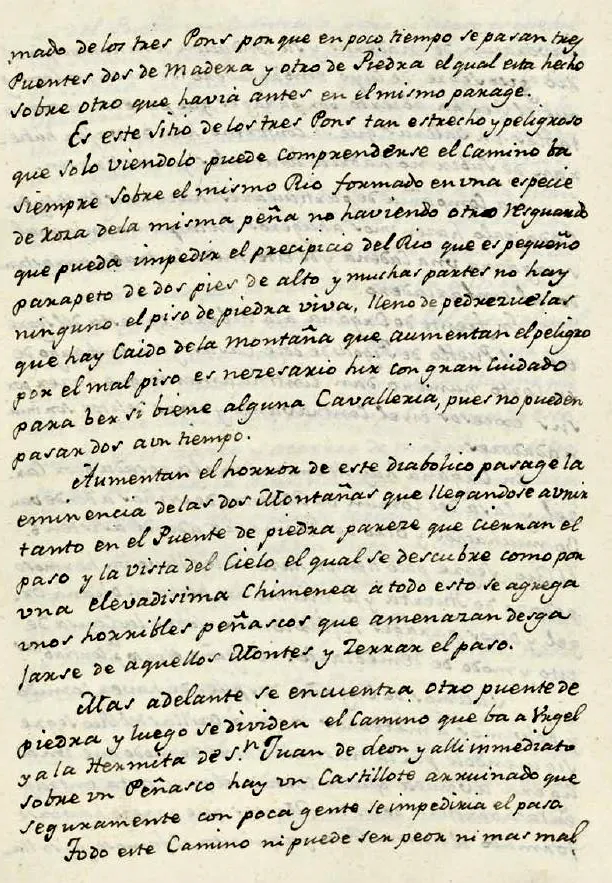 mado de los tres Pons porque en poco tiempo se pasan tres
Puentes dos de Madera y otro de Piedra el qual esta hecho
sobre otro que havia antes en el mismo parage.
Es este Sitio de los tres Pons tan estrecho y peligroso
que solo viendolo puede comprenderse el Camino ba
siempre sobre el mismo Rio formado en vna especie
de Roza de la misma peña no haviendo otro resguardo
que pueda impedir el precipicio del Rio que es pequeño
parapeto de dos pies de alto y muchas partes no hay
ninguno. el piso de piedra viva, lleno de pedrezuelas
que hay Caido de la Montaña que aumentan el peligro
por el mal piso es nezesario hir con gran Cuidado
para ber si biene alguna Cavalleria, pues no pueden
pasar dos a vn tiempo.
Aumentan el horror de este diabolico pasage la
eminencia de las dos Montañas que llegandose a vnir
tanto en el Puente de piedra pareze que cierran el
paso y la vista del Cielo el qual se descubre como por
vna elevadisima Chimenea a todo esto se agrega
vnos horribles peñascos que amenazan desga
jarse de aquellos Montes y Zerrar el paso.
Mas adelante se encuentra otro puente de
piedra y luego se dividen el Camino que ba a Vrgel
y a la Hermita de S.n Juan de leon y alli inmediato
sobre vn Peñasco hay vn Castillote arruinado que
seguramente con poca gente se impediria el paso
Todo este Camino ni puede ser peor ni mas mal